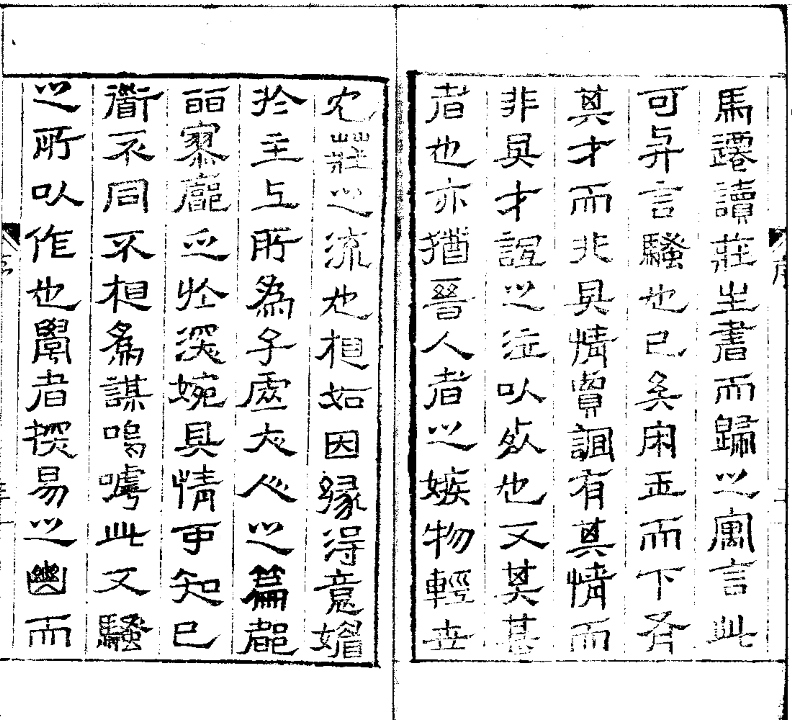 馬遷讀莊生書而歸之寓言此
可與言騷也已矣宋玉而下有
其才而非其情賈誼有其情而
非其才誼之泣以死也又其甚
者也亦猶晉人者之嫉物輕世
莊之流也相如因緣得意媚
於主上所爲子虛大人之篇都
麗寥廓乏於深婉其情可知已
衜不同不相爲謀嗚嘑此又騷
之所以作也學者探易之幽而